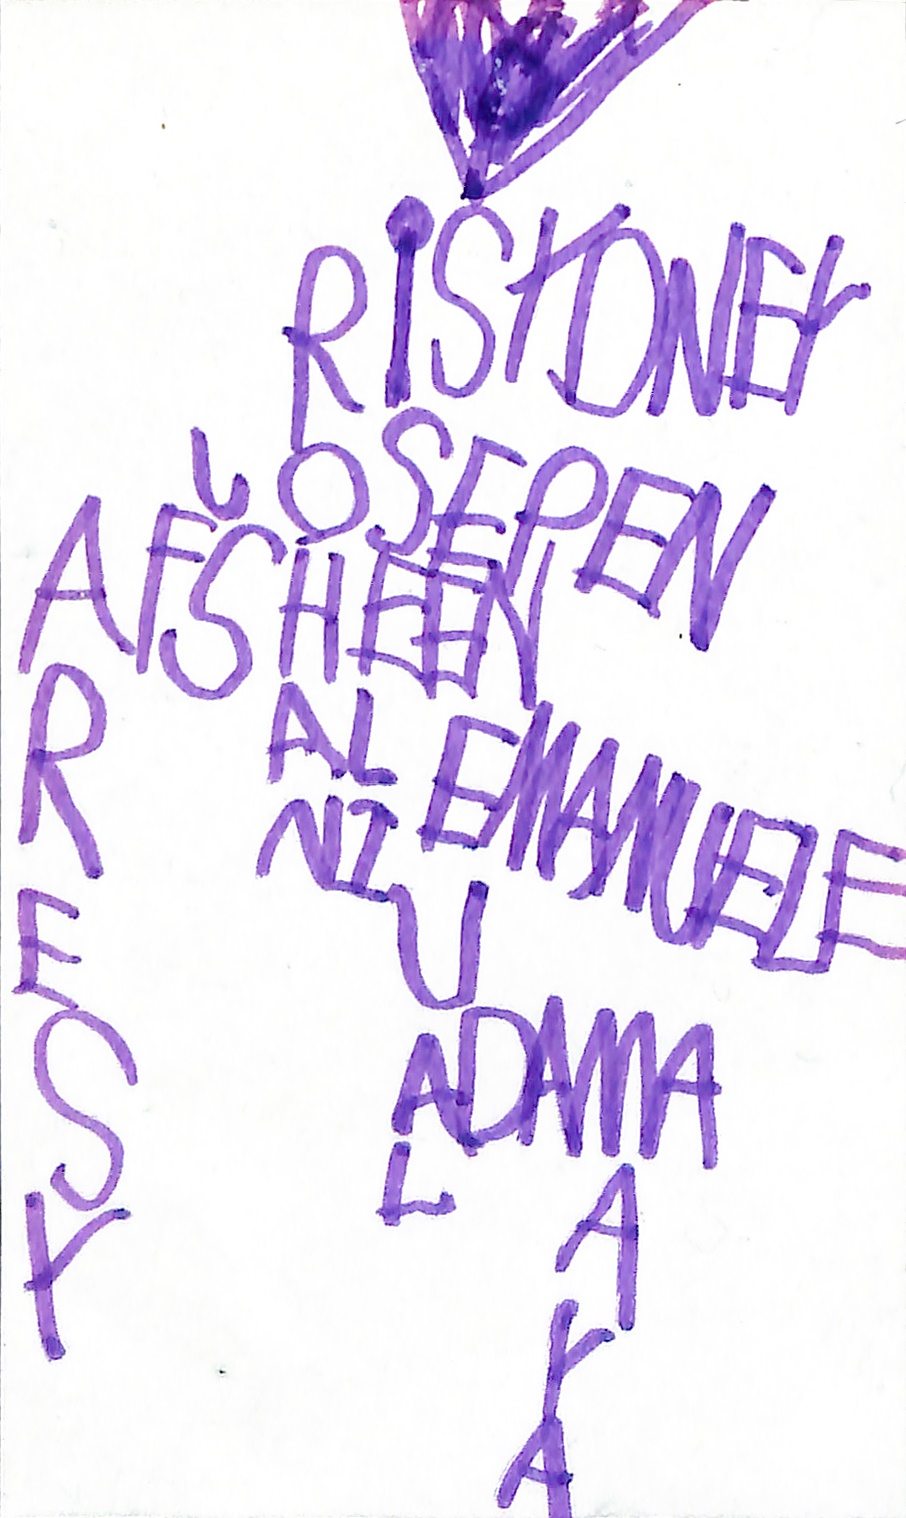 RISYONEY
OSEPEN
AFSHEEN
AL EMANUELE
NI
R
E
S
Y
U
ADAMA
L
A
Y
A